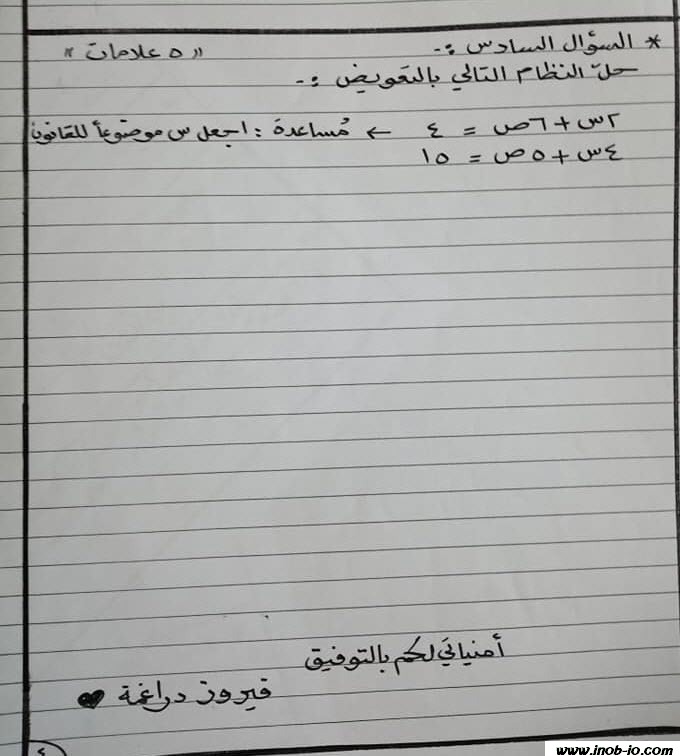 * السؤال السادس :- « ٥ علامات »
حلّ النظام التالي بالتعويض :-
٢س + ٦ص = ٤ ← مُساعدة : اجعل س موضوعاً للقانون
٤س + ٥ص = ١٥
أمنياتي لكم بالتوفيق
فيروز دراغمة ♥
٤
www.inob-io.com